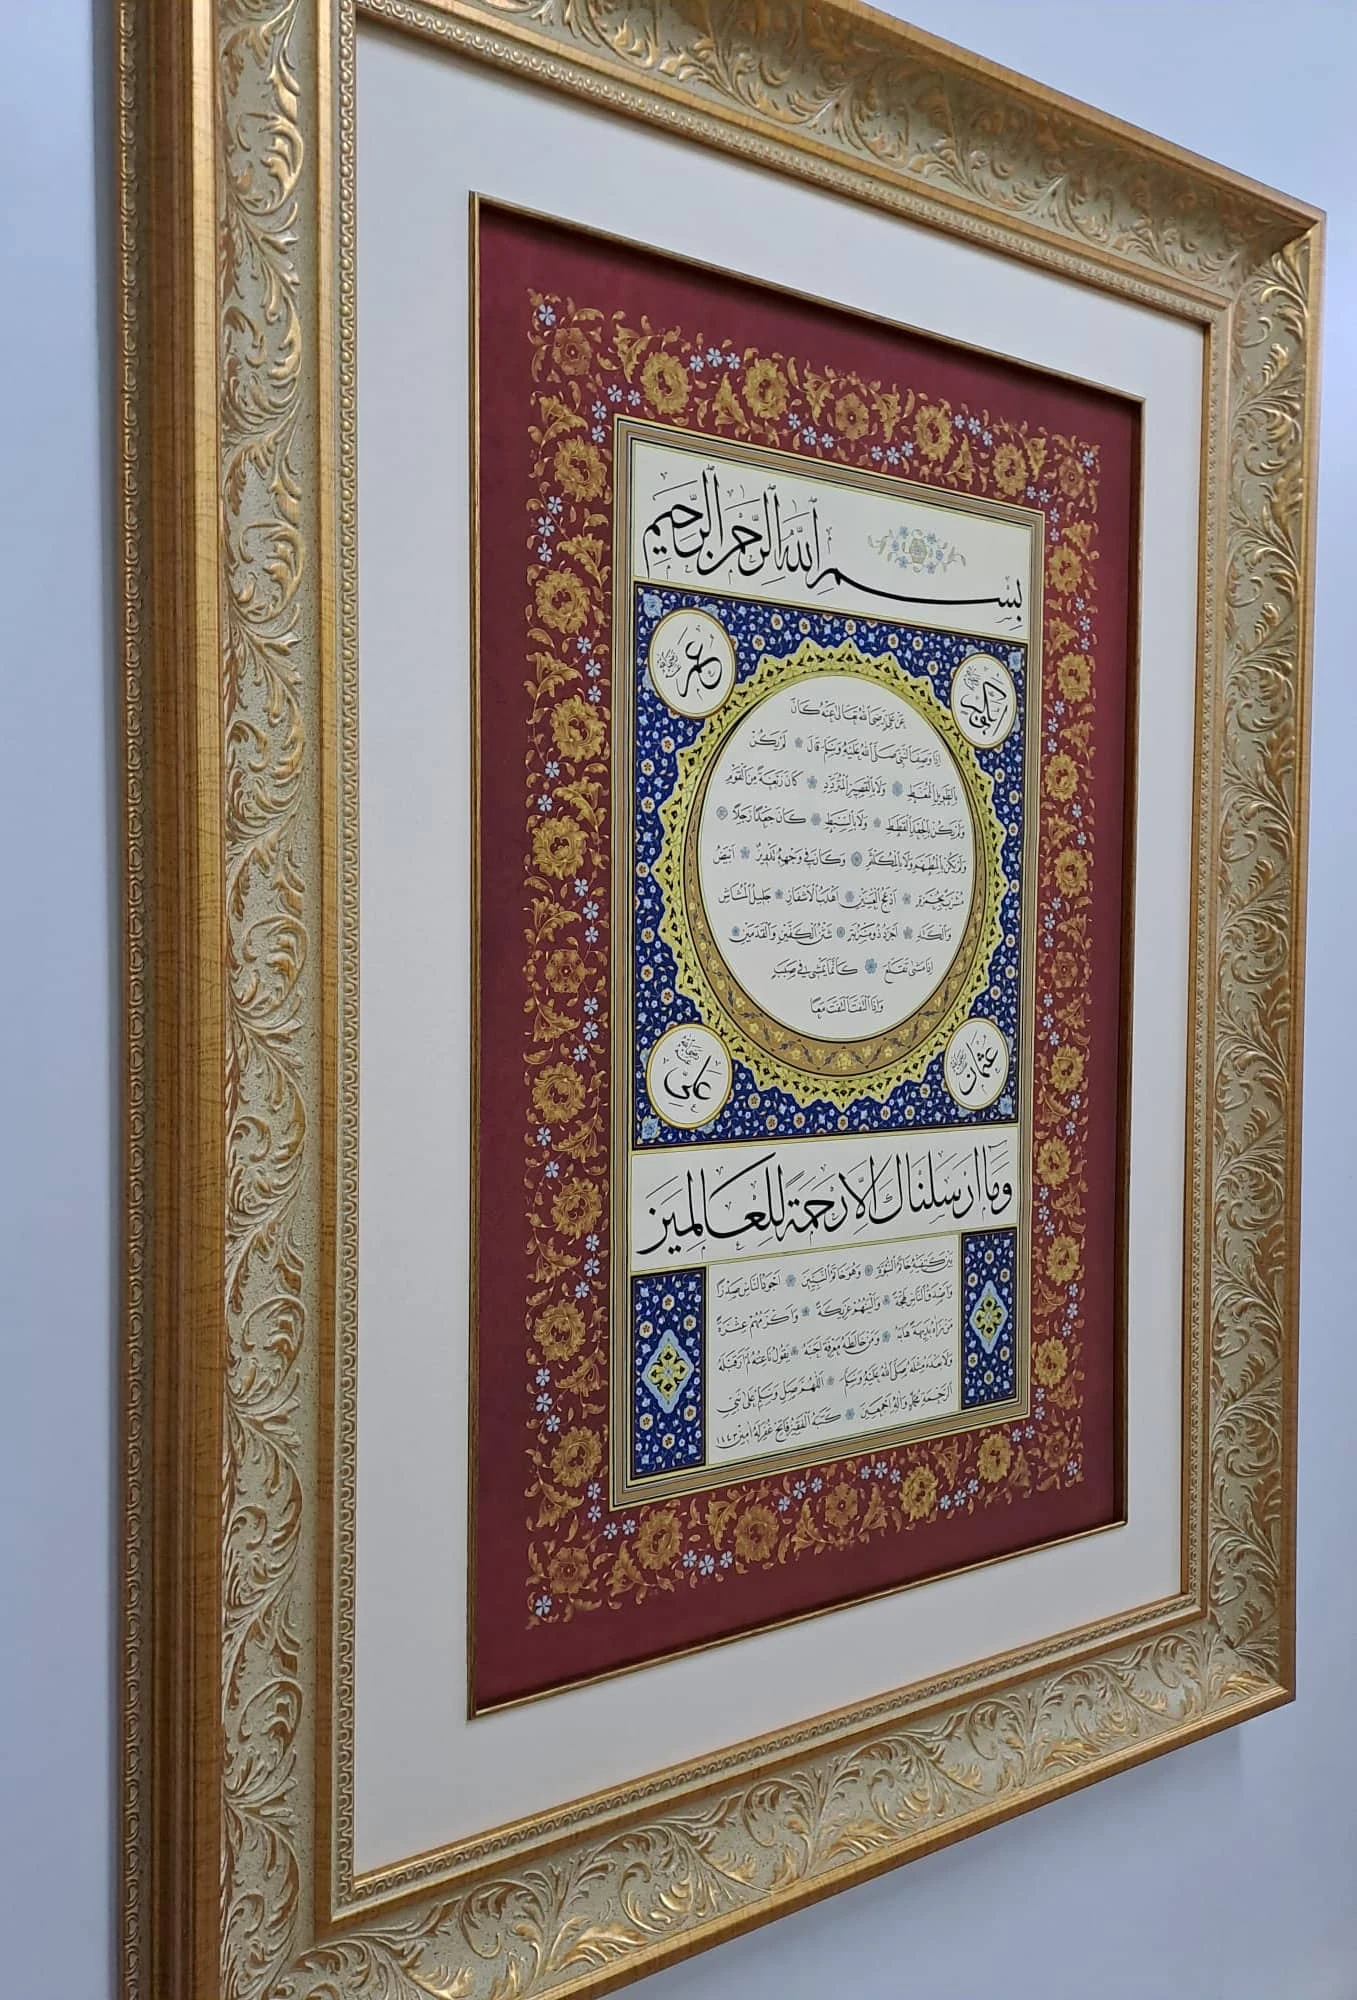 بِسْمِ ٱللّٰهِ ٱلرَّحْمٰنِ ٱلرَّحِيمِ
أبو بكر رضي الله عنه
عمر رضي الله عنه
عَنْ عَلِيٍّ رَضِيَ اللهُ تَعَالٰى عَنْهُ كَانَ
إِذَا وَصَفَ النَّبِيَّ صَلَّى اللهُ عَلَيْهِ وَسَلَّمَ قَالَ ۞ لَمْ يَكُنْ
بِالطَّوِيلِ الْمُمَّغِطِ ۞ وَلَا بِالْقَصِيرِ الْمُتَرَدِّدِ ۞ كَانَ رَبْعَةً مِنَ الْقَوْمِ
وَلَمْ يَكُنْ بِالْجَعْدِ الْقَطَطِ ۞ وَلَا بِالسَّبِطِ ۞ كَانَ جَعْدًا رَجِلًا ۞
وَلَمْ يَكُنْ بِالْمُطَهَّمِ وَلَا بِالْمُكَلْثَمِ ۞ وَكَانَ فِي وَجْهِهِ تَدْوِيرٌ ۞ أَبْيَضُ
مُشْرَبٌ بِحُمْرَةٍ ۞ أَدْعَجُ الْعَيْنَيْنِ ۞ أَهْدَبُ الْأَشْفَارِ ۞ جَلِيلُ الْمُشَاشِ
وَالْكَتَدِ ۞ أَجْرَدُ ذُو مَسْرُبَةٍ ۞ شَثْنُ الْكَفَّيْنِ وَالْقَدَمَيْنِ ۞
إِذَا مَشَى تَقَلَّعَ ۞ كَأَنَّمَا يَمْشِي فِي صَبَبٍ
وَإِذَا الْتَفَتَ الْتَفَتَ مَعًا
عثمان رضي الله عنه
علي رضي الله عنه
وَمَا أَرْسَلْنَاكَ إِلَّا رَحْمَةً لِلْعَالَمِينَ
بَيْنَ كَتِفَيْهِ خَاتَمُ النُّبُوَّةِ ۞ وَهُوَ خَاتَمُ النَّبِيِّينَ ۞ أَجْوَدُ النَّاسِ صَدْرًا
وَأَصْدَقُ النَّاسِ لَهْجَةً ۞ وَأَلْيَنُهُمْ عَرِيكَةً ۞ وَأَكْرَمُهُمْ عِشْرَةً
مَنْ رَآهُ بَدِيهَةً هَابَهُ ۞ وَمَنْ خَالَطَهُ مَعْرِفَةً أَحَبَّهُ ۞ يَقُولُ نَاعِتُهُ لَمْ أَرَ قَبْلَهُ
وَلَا بَعْدَهُ مِثْلَهُ صَلَّى اللهُ عَلَيْهِ وَسَلَّمَ ۞ اَللّٰهُمَّ صَلِّ وَسَلِّمْ عَلَى نَبِيِّ
الرَّحْمَةِ مُحَمَّدٍ وَآلِهِ أَجْمَعِينَ ۞ كَتَبَهُ الْفَقِيرُ فَاتِح غُفِرَ لَهُ آمِين ١٤٤٣